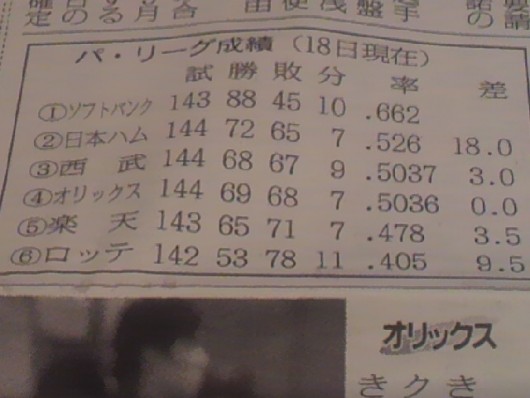 定のる月合
由使浅盤手
諾の請
パ・リーグ成績（18日現在）
試 勝 敗 分 率 差
①ソフトバンク 143 88 45 10 .662
②日本ハム 144 72 65 7 .526 18.0
③西 武 144 68 67 9 .5037 3.0
④オリックス 144 69 68 7 .5036 0.0
⑤楽 天 143 65 71 7 .478 3.5
⑥ロッテ 142 53 78 11 .405 9.5
オリックス
きクき